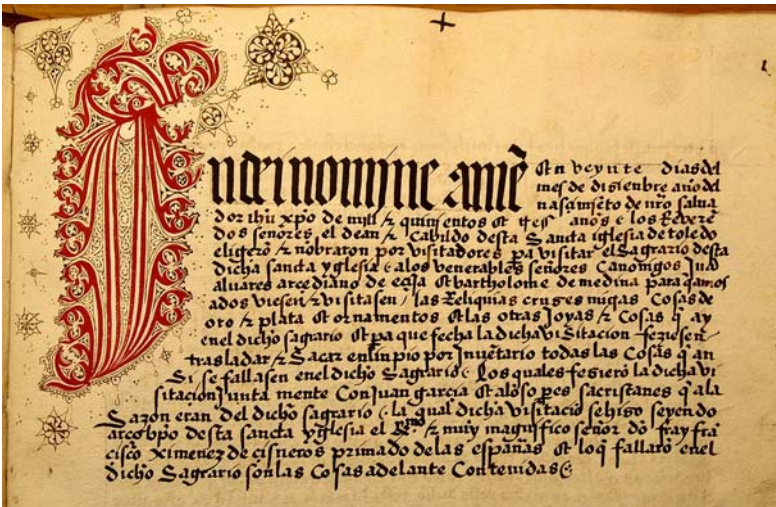 In dei nomine amē En veynte dias del
mes de disienbre año del
nasçimēto de nr̄o salua
dor ihū xp̄o de mill & quinientos & tres años los Reverē
dos señores el dean & Cabildo desta Sancta iglesia de toledo
eligerō & nōbraron por visitadores pa visitar el Sagrario desta
dicha sancta yglesia a los venerables señores Canonigos Juā
aluares arcediano de eçija & bartholome de medina para q̄ amos
ados viesen & visitasen las Reliquias cruzes mitras Cosas de
oro & plata & ornamentos & las otras Joyas & Cosas q̄ ay
en el dicho sagrario & pa que fecha la dicha visitacion feziesen
trasladar & Sacar en linpio por Inuētario todas las Cosas q̄ an
Si se fallasen en el dicho Sagrario Los quales fezierō la dicha vi
sitacion Junta mente Con Juan garcia & alōso p̄es sacristanes q̄ a la
Sazon eran del dicho sagrario la qual dicha visitaciō se hizo seyendo
arçob̄po desta sancta yglesia el R̄mo & muy magnifico señor dō fray frā
cisco Ximenez de cisneros primado de las españas & lo q̄ fallarō en el
dicho Sagrario son las Cosas adelante Contenidas